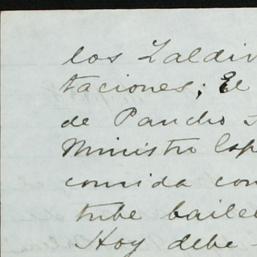 los Zaldiv
taciones; El
de Pancho
Ministro Esp
comida con
tube baile
Hoy debe